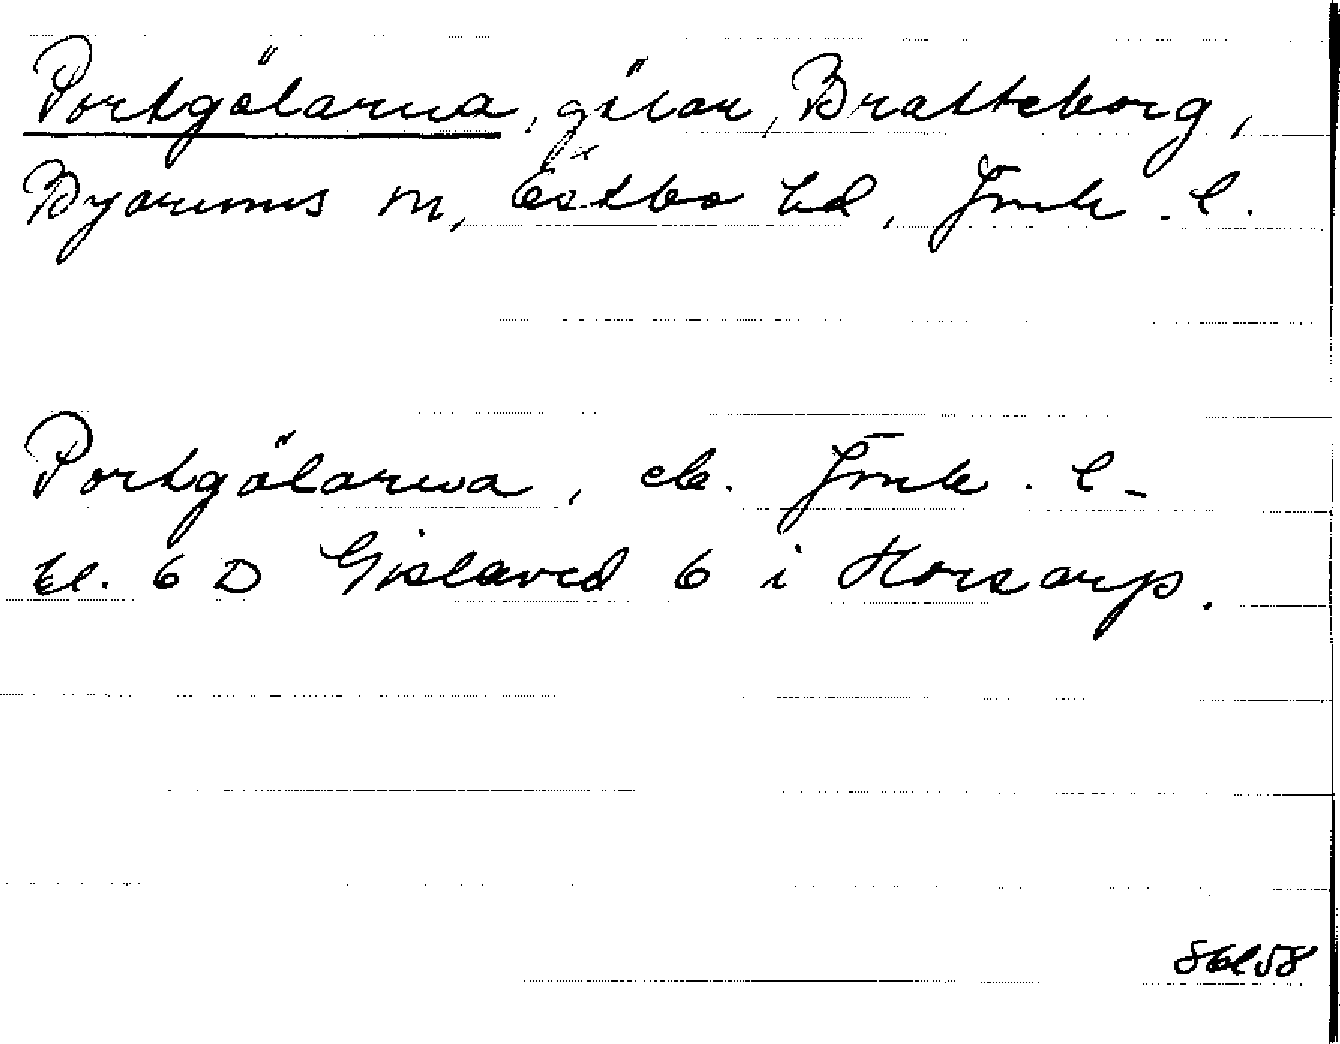 Portgölarna, gölar, Bratteborg,
Byarums sn, Östbo hd, Jmk. l.
Portgölarna, ek. Jmk. l.
bl. 6 D Gislaved 6 i Horsarp.